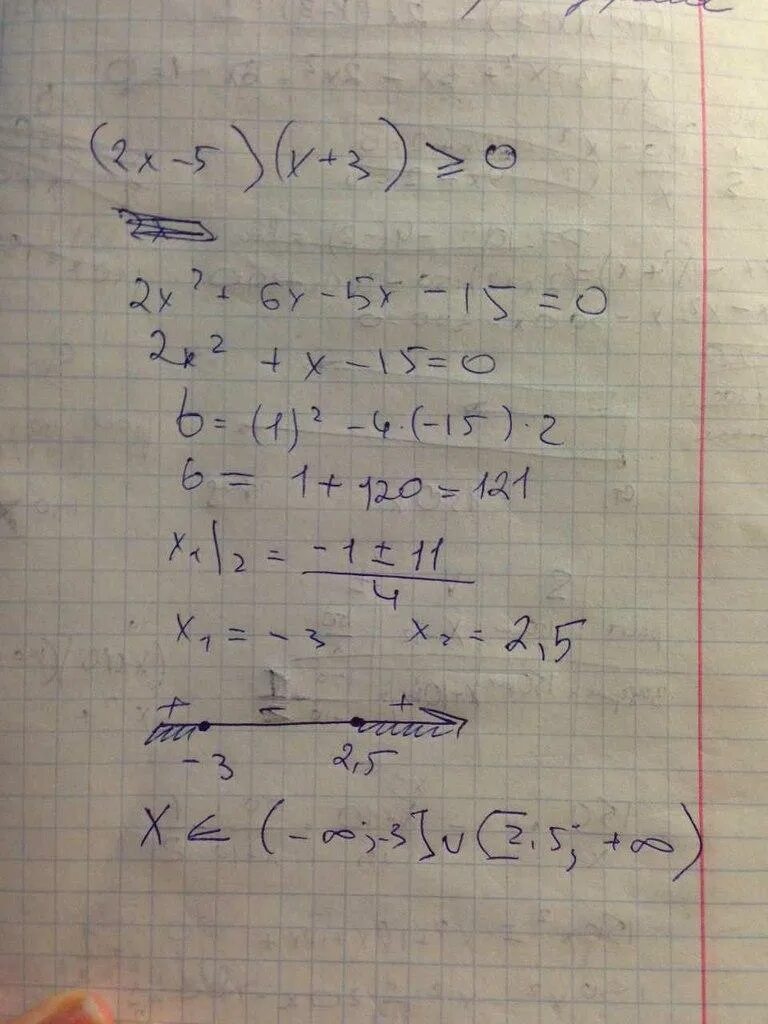 (2x-5)(x+3) ≥ 0
2x² + 6x - 5x - 15 = 0
2x² + x - 15 = 0
б = (1)² - 4·(-15)·2
б = 1 + 120 = 121
x₁/₂ = (-1 ± 11)/4
x₁ = -3 x₂ = 2,5
+ - +
-3 2,5
X ∈ (-∞;-3] ∪ [2,5; +∞)